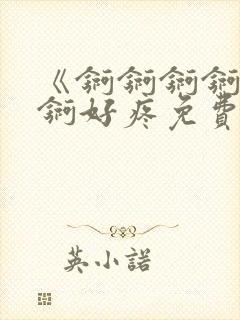 《錒錒錒錒
錒好疼免費
英小諾